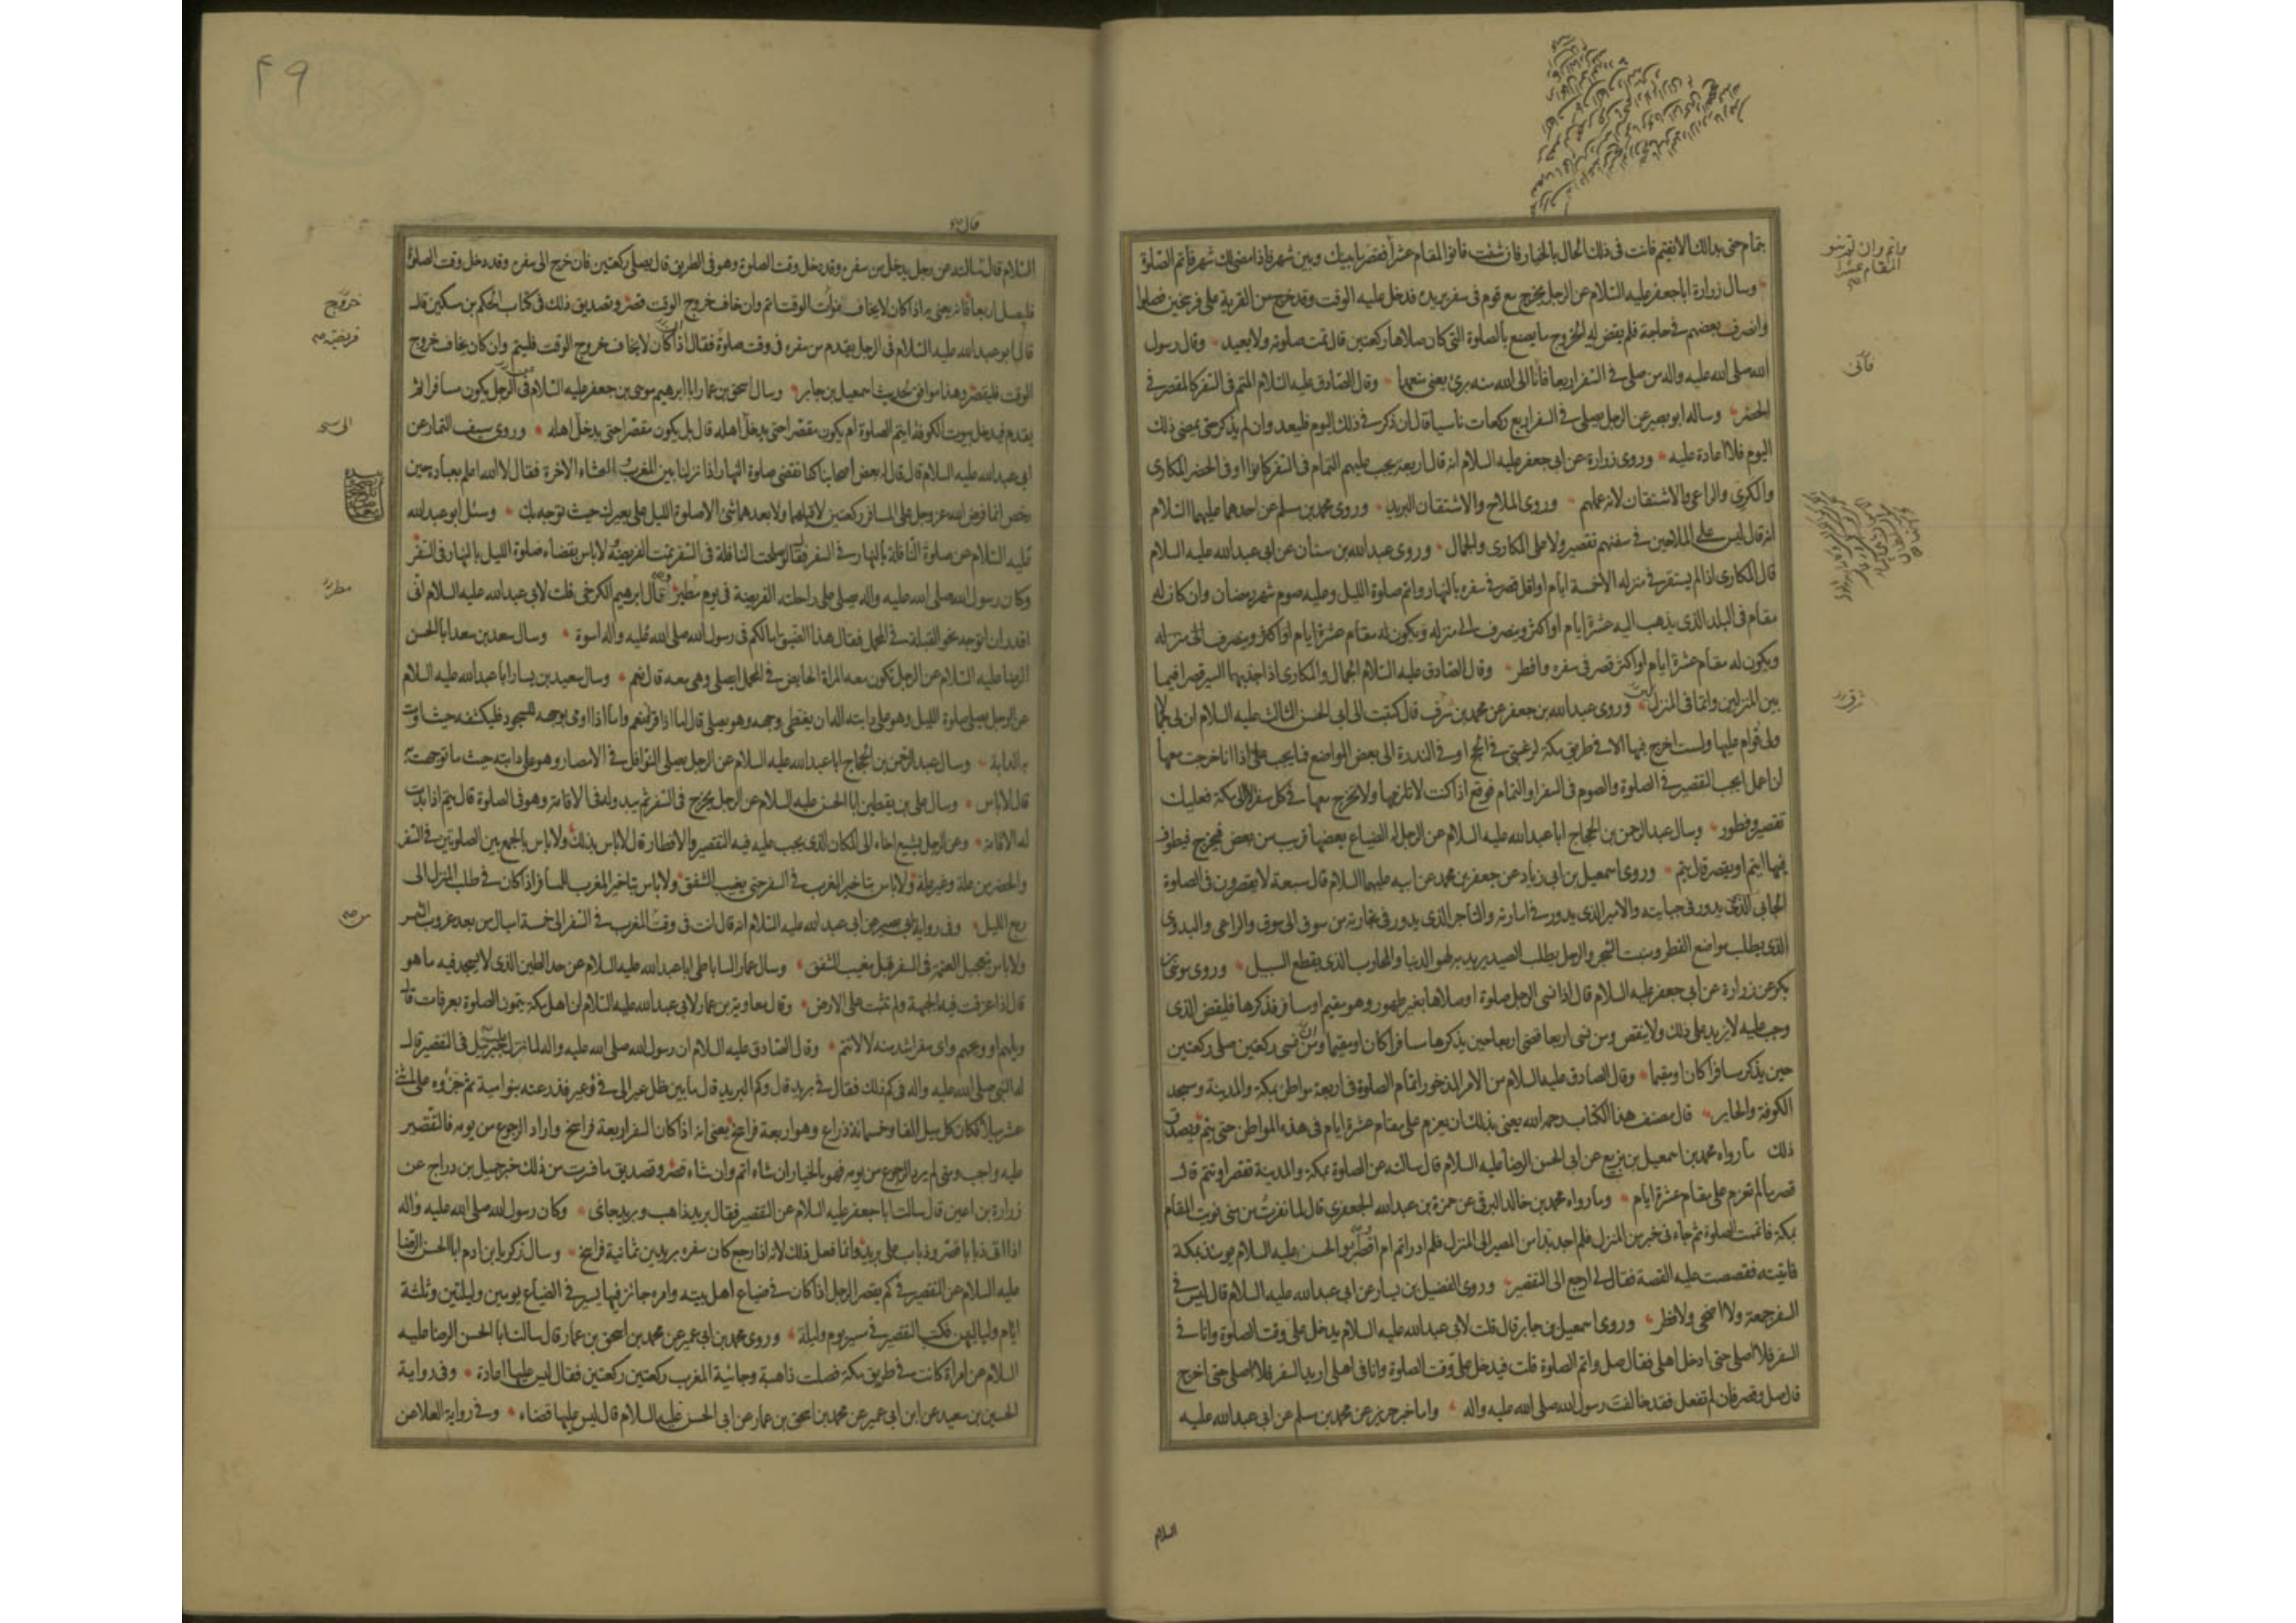 بتمام حتى بدا لك الا تقيم فانت فى ذلك الحال بالخيار فان شئت فانو المقام عشرا فقصر ما بينك وبين شهر فاذا مضى لك شهر فاتم الصلوة
وسال زرارة ابا جعفر عليه السلام عن الرجل يخرج مع قوم فى سفر يريده فدخل عليه الوقت وقد خرج من القرية على فرسخين فصلوا
وانصرف بعضهم فى حاجة فلم يقض له الخروج ما يصنع بالصلوة التى كان صلاها ركعتين قال تمت صلوته ولا يعيد وقال رسول
الله صلى الله عليه واله من صلى فى السفر اربعا فانا الى الله منه برئ يعنى متعمدا وقال الصادق عليه السلام المتم فى السفر كالمقصر فى
الحضر وساله ابو بصير عن الرجل يصلى فى السفر اربع ركعات ناسيا قال ان ذكر فى ذلك اليوم فليعد وان لم يذكر حتى يمضى ذلك
اليوم فلا اعادة عليه وروى زرارة عن ابى جعفر عليه السلام انه قال اربعة يجب عليهم التمام فى السفر كانوا او فى الحضر المكارى
والكرى والراعى والاشتقان لانه عملهم وروى الملاح والاشتقان البريد وروى محمد بن مسلم عن احدهما عليهما السلام
انه قال ليس على الملاحين فى سفنهم تقصير ولا على المكارى والجمال وروى عبد الله بن سنان عن ابى عبد الله عليه السلام
قال المكارى اذا لم يستقر فى منزله الا خمسة ايام او اقل قصر فى سفره بالنهار واتم صلوة الليل وعليه صوم شهر رمضان وان كان له
مقام فى البلد الذى يذهب اليه عشرة ايام او اكثر وينصرف الى منزله ويكون له مقام عشرة ايام او اكثر وينصرف الى منزله
ويكون له مقام عشرة ايام او اكثر قصر فى سفره وافطر وقال الصادق عليه السلام الجمال والمكارى اذا جد بهما السير قصرا فيما
بين المنزلين واتما فى المنزل وروى عبد الله بن جعفر عن محمد بن شرف قال كتبت الى ابى الحسن الثالث عليه السلام ان لى جمالا
ولى قوام عليها ولست اخرج فيها الا فى طريق مكة لرغبتى فى الحج او فى الندرة الى بعض المواضع فما يجب على اذا انا خرجت معها
ان اعمل ايجب التقصير فى الصلوة والصوم فى السفر او التمام فوقع اذا كنت لا تلزمها ولا تخرج معها فى كل سفر الا الى مكة فعليك
تقصير وفطور وسال عبد الرحمن بن الحجاج ابا عبد الله عليه السلام عن الرجل له الضياع بعضها قريب من بعض فيخرج فيطوف
فيها ايتم او يقصر قال يتم وروى اسمعيل بن ابى زياد عن جعفر بن محمد عن ابيه عليهما السلام قال سبعة لا يقصرون فى الصلوة
الجابى الذى يدور فى جبايته والامير الذى يدور فى امارته والتاجر الذى يدور فى تجارته من سوق الى سوق والراعى والبدوى
الذى يطلب مواضع القطر ومنبت الشجر والرجل يطلب الصيد يريد به لهو الدنيا والمحارب الذى يقطع السبيل وروى موسى بن
بكر عن زرارة عن ابى جعفر عليه السلام قال اذا نسى الرجل صلوة او صلاها بغير طهور وهو مقيم او مسافر فذكرها فليقض الذى
وجب عليه لا يزيد على ذلك ولا ينقص ومن نسى اربعا قضى اربعا حين يذكرها مسافرا كان او مقيما ومن نسى ركعتين صلى ركعتين
حين يذكر مسافرا كان او مقيما وقال الصادق عليه السلام من الامر المذخور اتمام الصلوة فى اربعة مواطن مكة والمدينة ومسجد
الكوفة والحاير قال مصنف هذا الكتاب رحمه الله يعنى بذلك ان يعزم على مقام عشرة ايام فى هذه المواطن حتى يتم وتصديق
ذلك ما رواه محمد بن اسمعيل بن بزيع عن ابى الحسن الرضا عليه السلام قال سالته عن الصلوة بمكة والمدينة تقصر او تتم قال
قصر ما لم تعزم على مقام عشرة ايام وما رواه محمد بن خالد البرقى عن حمزة بن عبد الله الجعفرى قال لما نفرت من منى نويت المقام
بمكة فاتممت الصلوة ثم جاءنى خبر من المنزل فلم اجد بدا من المصير الى المنزل فلم ادر اتم ام اقصر وابو الحسن عليه السلام يومئذ بمكة
فاتيته فقصصت عليه القصة فقال لى ارجع الى التقصير وروى الفضيل بن يسار عن ابى عبد الله عليه السلام قال ليس فى
السفر جمعة ولا اضحى ولا فطر وروى اسمعيل بن جابر قال قلت لابى عبد الله عليه السلام يدخل على وقت الصلوة وانا فى
السفر فلا اصلى حتى ادخل اهلى فقال صل واتم الصلوة قلت فيدخل على وقت الصلوة وانا فى اهلى اريد السفر فلا اصلى حتى اخرج
قال صل وقصر فان لم تفعل فقد خالفت رسول الله صلى الله عليه واله واما خبر حريز عن محمد بن مسلم عن ابى عبد الله عليه
السلام
٤٩
السلام قال سالته عن رجل يدخل من سفره وقد دخل وقت الصلوة وهو فى الطريق قال يصلى ركعتين فان خرج الى سفره وقد دخل وقت الصلوة
فليصل اربعا فانه يعنى به اذا كان لا يخاف فوات الوقت اتم وان خاف خروج الوقت قصر وتصديق ذلك فى كتاب الحكم بن مسكين قال
قال ابو عبد الله عليه السلام فى الرجل يقدم من سفره فى وقت صلوة فقال اذا كان لا يخاف خروج الوقت فليتم وان كان يخاف خروج
الوقت فليقصر وهذا موافق لحديث اسمعيل بن جابر وسال اسحق بن عمار ابا ابرهيم موسى بن جعفر عليه السلام فى الرجل يكون مسافرا ثم
يقدم فيدخل بيوت الكوفة ايتم الصلوة ام يكون مقصرا حتى يدخل اهله قال بل يكون مقصرا حتى يدخل اهله وروى سيف التمار عن
ابى عبد الله عليه السلام قال قال له بعض اصحابنا كنا نقضى صلوة النهار اذا نزلنا بين المغرب والعشاء الاخرة فقال لا الله اعلم بعباده حين
رخص انما فرض الله عز وجل على المسافر ركعتين لا قبلهما ولا بعدهما شئ الا صلوة الليل على بعيرك حيث توجه بك وسئل ابو عبد الله
عليه السلام عن صلوة النافلة بالنهار فى السفر فقال لو صلحت النافلة فى السفر تمت الفريضة لا باس بقضاء صلوة الليل بالنهار فى السفر
وكان رسول الله صلى الله عليه واله يصلى على راحلته الفريضة فى يوم مطير وقال ابرهيم الكرخى قلت لابى عبد الله عليه السلام انى
اقدر ان اتوجه نحو القبلة فى المحمل فقال هذا الضيق اما لكم فى رسول الله صلى الله عليه واله اسوة وسال سعد بن سعد ابا الحسن
الرضا عليه السلام عن الرجل تكون معه المراة الحايض فى المحمل ايصلى وهى معه قال نعم وسال سعيد بن يسار ابا عبد الله عليه السلام
عن الرجل يصلى صلوة الليل وهو على دابته اله ان يغطى وجهه وهو يصلى قال اما اذا قرا فنعم واما اذا اومى بوجهه للسجود فليكشفه حيث اومت
به الدابة وسال عبد الرحمن بن الحجاج ابا عبد الله عليه السلام عن الرجل يصلى النوافل فى الامصار وهو على دابته حيث ما توجهت به
قال لا باس وسال على بن يقطين ابا الحسن عليه السلام عن الرجل يخرج فى السفر ثم يبدو له فى الاقامة وهو فى الصلوة قال يتم اذا بدت
له الاقامة وعن الرجل يشيع اخاه الى المكان الذى يجب عليه فيه التقصير والافطار قال لا باس بذلك ولا باس بالجمع بين الصلوتين فى السفر
والحضر من علة وغير علة ولا باس بتاخير المغرب فى السفر حتى يغيب الشفق ولا باس بتاخير المغرب للمسافر اذا كان فى طلب المنزل الى
ربع الليل وفى رواية ابى بصير عن ابى عبد الله عليه السلام انه قال انت فى وقت المغرب فى السفر الى خمسة اميال من بعد غروب الشمس
ولا باس بتعجيل العتمة فى السفر قبل مغيب الشفق وسال عمار الساباطى ابا عبد الله عليه السلام عن حد الطين الذى لا يسجد فيه ما هو
قال اذا غرقت فيه الجبهة ولم تثبت على الارض وقال معاوية بن عمار لابى عبد الله عليه السلام ان اهل مكة يتمون الصلوة بعرفات قال
ويلهم او ويحهم واى سفر اشد منه لا لا تتم وقال الصادق عليه السلام ان رسول الله صلى الله عليه واله لما نزل عليه جبرئيل فى التقصير قال
له النبى صلى الله عليه واله فى كم ذلك فقال فى بريد قال وكم البريد قال ما بين ظل عير الى فئ وعير فذرعته بنو امية ثم جزؤه على اثنى
عشر ميلا فكان كل ميل الفا وخمسمائة ذراع وهو اربعة فراسخ يعنى انه اذا كان السفر اربعة فراسخ واراد الرجوع من يومه فالتقصير
عليه واجب ومتى لم يرد الرجوع من يومه فهو بالخيار ان شاء اتم وان شاء قصر وتصديق ما فسرت من ذلك خبر جميل بن دراج عن
زرارة بن اعين قال سالت ابا جعفر عليه السلام عن التقصير فقال بريد ذاهب وبريد جائ وكان رسول الله صلى الله عليه واله
اذا اتى ذبابا قصر وذباب على بريد وانما فعل ذلك لانه اذا رجع كان سفره بريدين ثمانية فراسخ وسال زكريا بن ادم ابا الحسن الرضا
عليه السلام عن التقصير فى كم يقصر الرجل اذا كان فى ضياع اهل بيته وامره جائز فيها يسير فى الضياع يومين وليلتين وثلثة
ايام ولياليهن فكتب التقصير فى مسير يوم وليلة وروى محمد بن ابى عمير عن محمد بن اسحق بن عمار قال سالت ابا الحسن الرضا عليه
السلام عن امراة كانت فى طريق مكة فصلت ذاهبة وجائية المغرب ركعتين ركعتين فقال ليس عليها اعادة وفى رواية
الحسين بن سعيد عن ابن ابى عمير عن محمد بن اسحق بن عمار عن ابى الحسن عليه السلام قال ليس عليها قضاء وفى رواية العلا عن